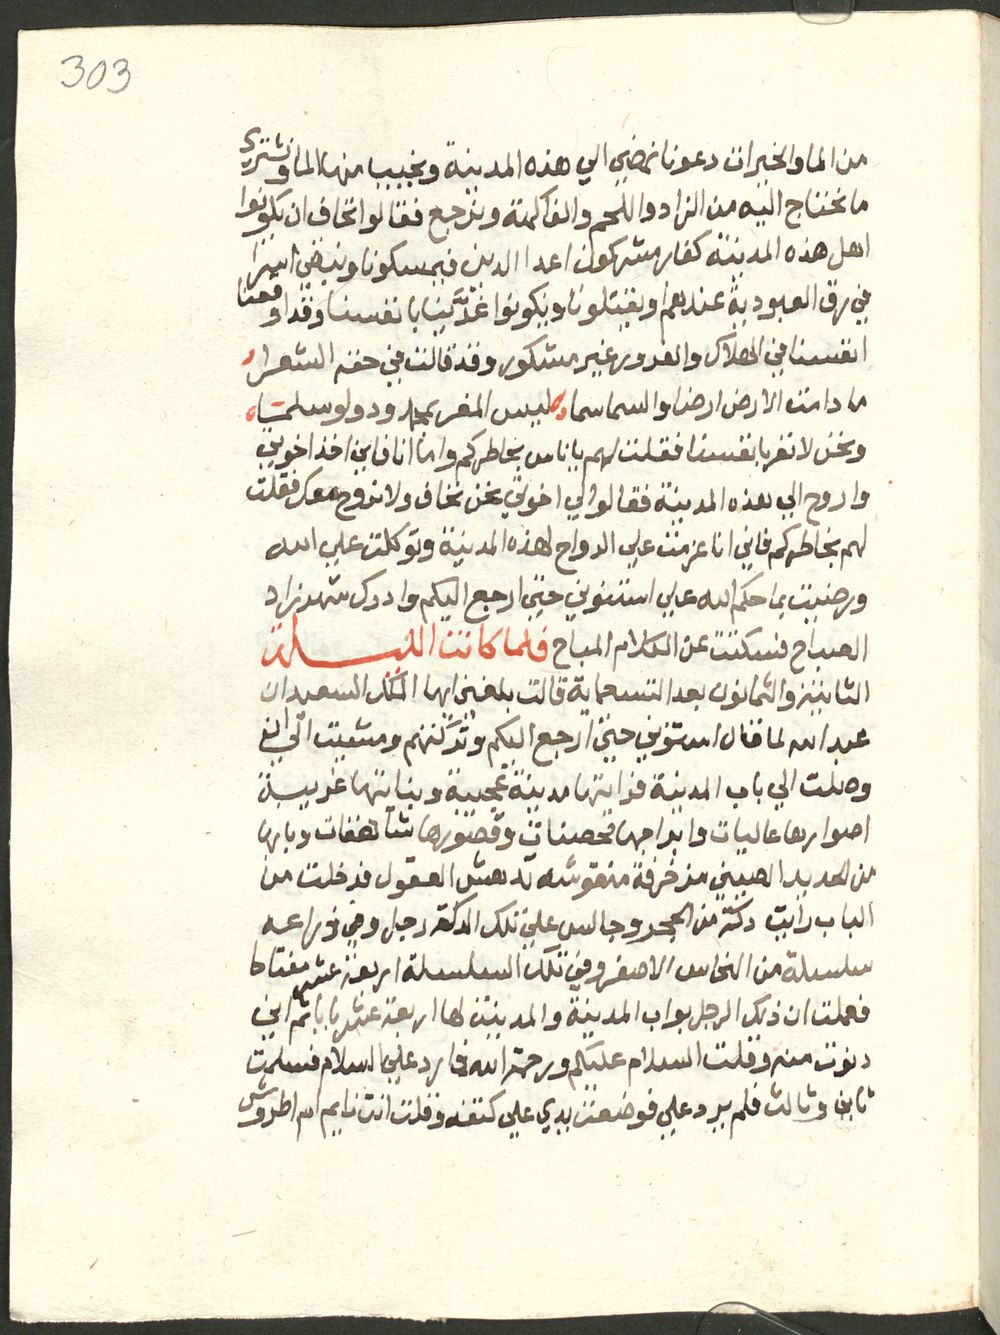 303
من الما والخيرات دعونا نمضي الي هذه المدينة ونجيب منها الما ونشتري
ما نحتاج اليه من الزاد واللحم والفاكهة ونرجع فقالوا نخاف ان يكونوا
اهل هذه المدينة كفار مشركون اعدا الدين فيمسكونا ونبقي اسرا
في رق العبودية عندهم او يقتلونا ونكون غدينا بانفسنا وقد اوقعنا
انفسنا في الهلاك والغدور غير مشكور وقد قالت في حقه الشعرا
ما دامت الارض ارضا والسما سما ليس المغرر بمحمود ولو سلمتا
ونحن لا نغر بانفسنا فقلت لهم يا ناس بخاطركم وانا انا فاني اخذ اخوتي
واروح الي هذه المدينة فقالوا لي اخوتي نحن نخاف ولا نروح معك فقلت
لهم بخاطركم فاني انا عزمت علي الرواح لهذه المدينة وتوكلت علي الله
ورضيت بما حكم الله علي استنوني حتي ارجع اليكم وادرك شهرزاد
الصباح فسكتت عن الكلام المباح فلما كانت الليلة
الثانية والثمانون بعد التسعماية قالت بلغني ايها الملك السعيد ان
عبد الله لما قال استنوني حتي ارجع اليكم وتركتهم ومشيت الي ان
وصلت الي باب المدينة فرايتها مدينة عجيبة وبنايتها غريبة
اصوارها عاليات وابراجها محصنات وقصورها شاهقات وبابها
من الحديد الصيني مزخرفة منقوشه تدهش العقول فدخلت من
الباب رايت دكة من الحجر وجالس علي تلك الدكة رجل وفي ذراعه
سلسلة من النحاس الاصفر وفي تلك السلسلة اربعة عشر مفتاحا
فعلمت ان ذلك الرجل بواب المدينة والمدينة لها اربعة عشر بابا ثم اني
دنوت منه وقلت السلام عليكم ورحمة الله فما رد علي السلام فسلمت
ثاني وثالث فلم يرد علي فوضعت يدي علي كتفه وقلت انت نايم ام اطروش